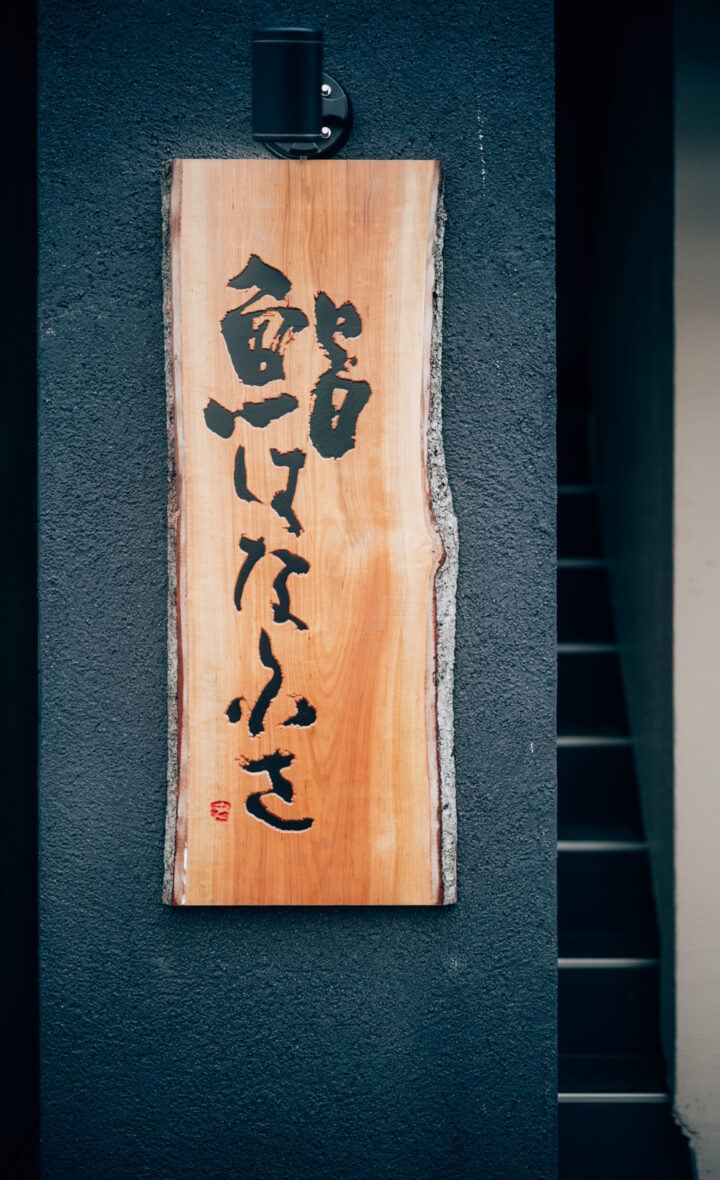 鮨はなぶさ